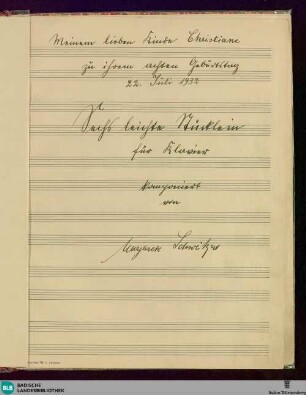 Meinem lieben Kinde Christiane
zu ihrem achten Geburtstag
22. Juli 1932
Sechs leichte Stücklein
für Klavier
komponiert
von
Margarete Schweikert
BLB BADISCHE
LANDESBIBLIOTHEK
Baden-Württemberg